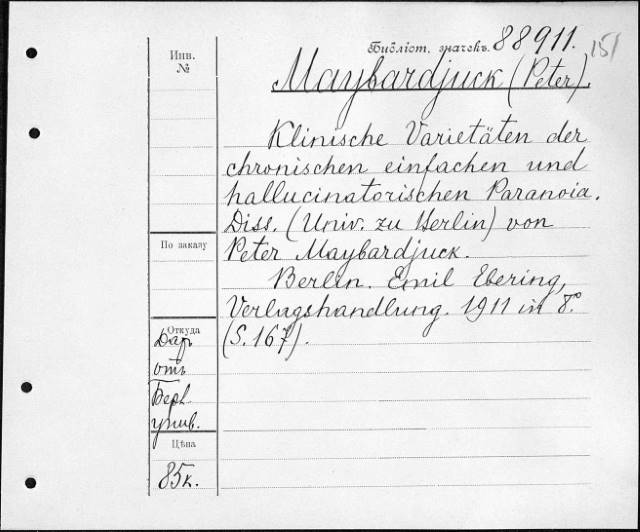 Библіот. значекъ. 88911.
151
Инв.
№
Maybardjuck (Peter).
Klinische Varietäten der
chronischen einfachen und
hallucinatorischen Paranoia.
Diss. (Univ. zu Berlin) von
По заказу
Peter Maybardjuck.
Berlin. Emil Ebering,
Verlagshandlung. 1911 in 8°.
(S. 167).
Откуда
Даръ
отъ
Берл.
унив.
Цѣна
85к.